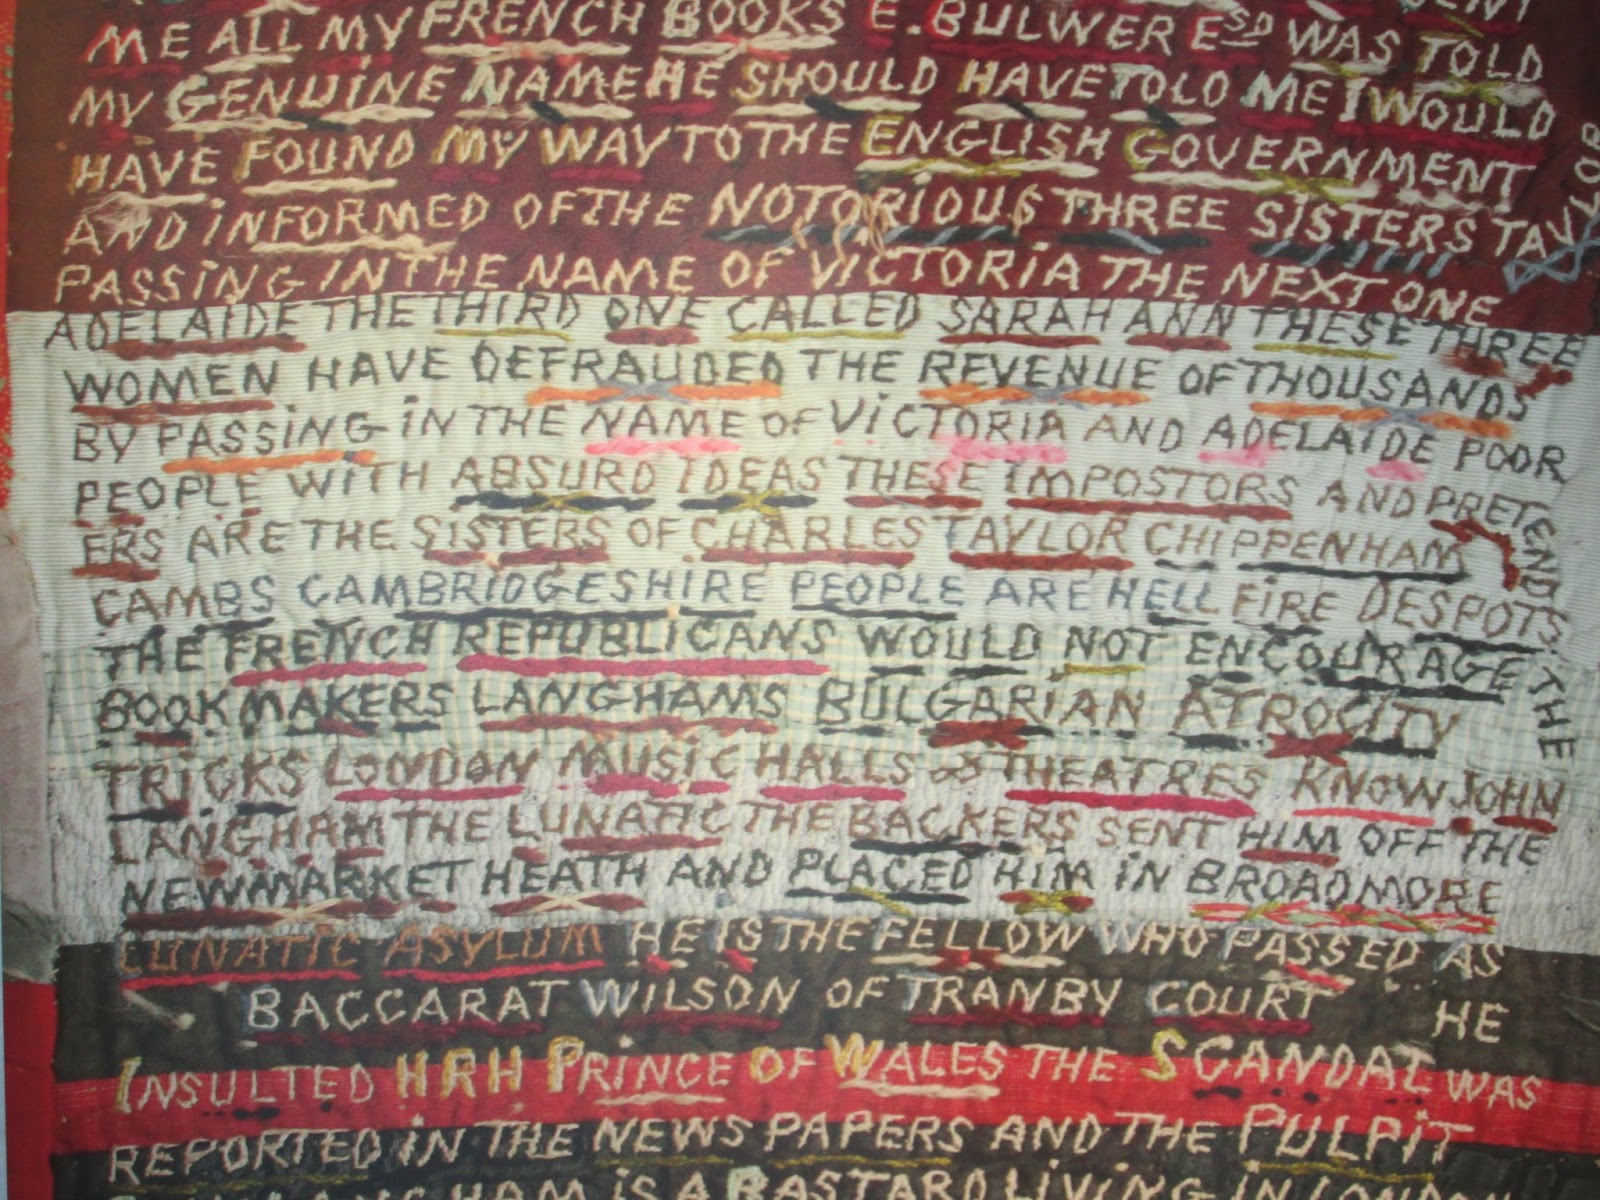 ME ALL MY FRENCH BOOKS E. BULWER ESD WAS TOLD
MY GENUINE NAME HE SHOULD HAVE TOLD ME I WOULD
HAVE FOUND MY WAY TO THE ENGLISH GOVERNMENT
AND INFORMED OF THE NOTORIOUS THREE SISTERS TAY
PASSING IN THE NAME OF VICTORIA THE NEXT ONE
ADELAIDE THE THIRD ONE CALLED SARAH ANN THESE THREE
WOMEN HAVE DEFRAUDED THE REVENUE OF THOUSANDS
BY PASSING IN THE NAME OF VICTORIA AND ADELAIDE POOR
PEOPLE WITH ABSURD IDEAS THESE IMPOSTORS AND PRETEND
ERS ARE THE SISTERS OF CHARLES TAYLOR CHIPPENHAM
CAMBS CAMBRIDGESHIRE PEOPLE ARE HELL FIRE DESPOTS
THE FRENCH REPUBLICANS WOULD NOT ENCOURAGE THE
BOOKMAKERS LANGHAMS BULGARIAN ATROCITY THE
TRICKS LONDON MUSIC HALLS & THEATRES KNOW JOHN
LANGHAM THE LUNATIC THE BACKERS SENT HIM OFF THE
NEWMARKET HEATH AND PLACED HIM IN BROADMORE
LUNATIC ASYLUM HE IS THE FELLOW WHO PASSED AS
BACCARAT WILSON OF TRANBY COURT HE
INSULTED HRH PRINCE OF WALES THE SCANDAL WAS
REPORTED IN THE NEWS PAPERS AND THE PULPIT
LANGHAM IS A BASTARD LIVING IN